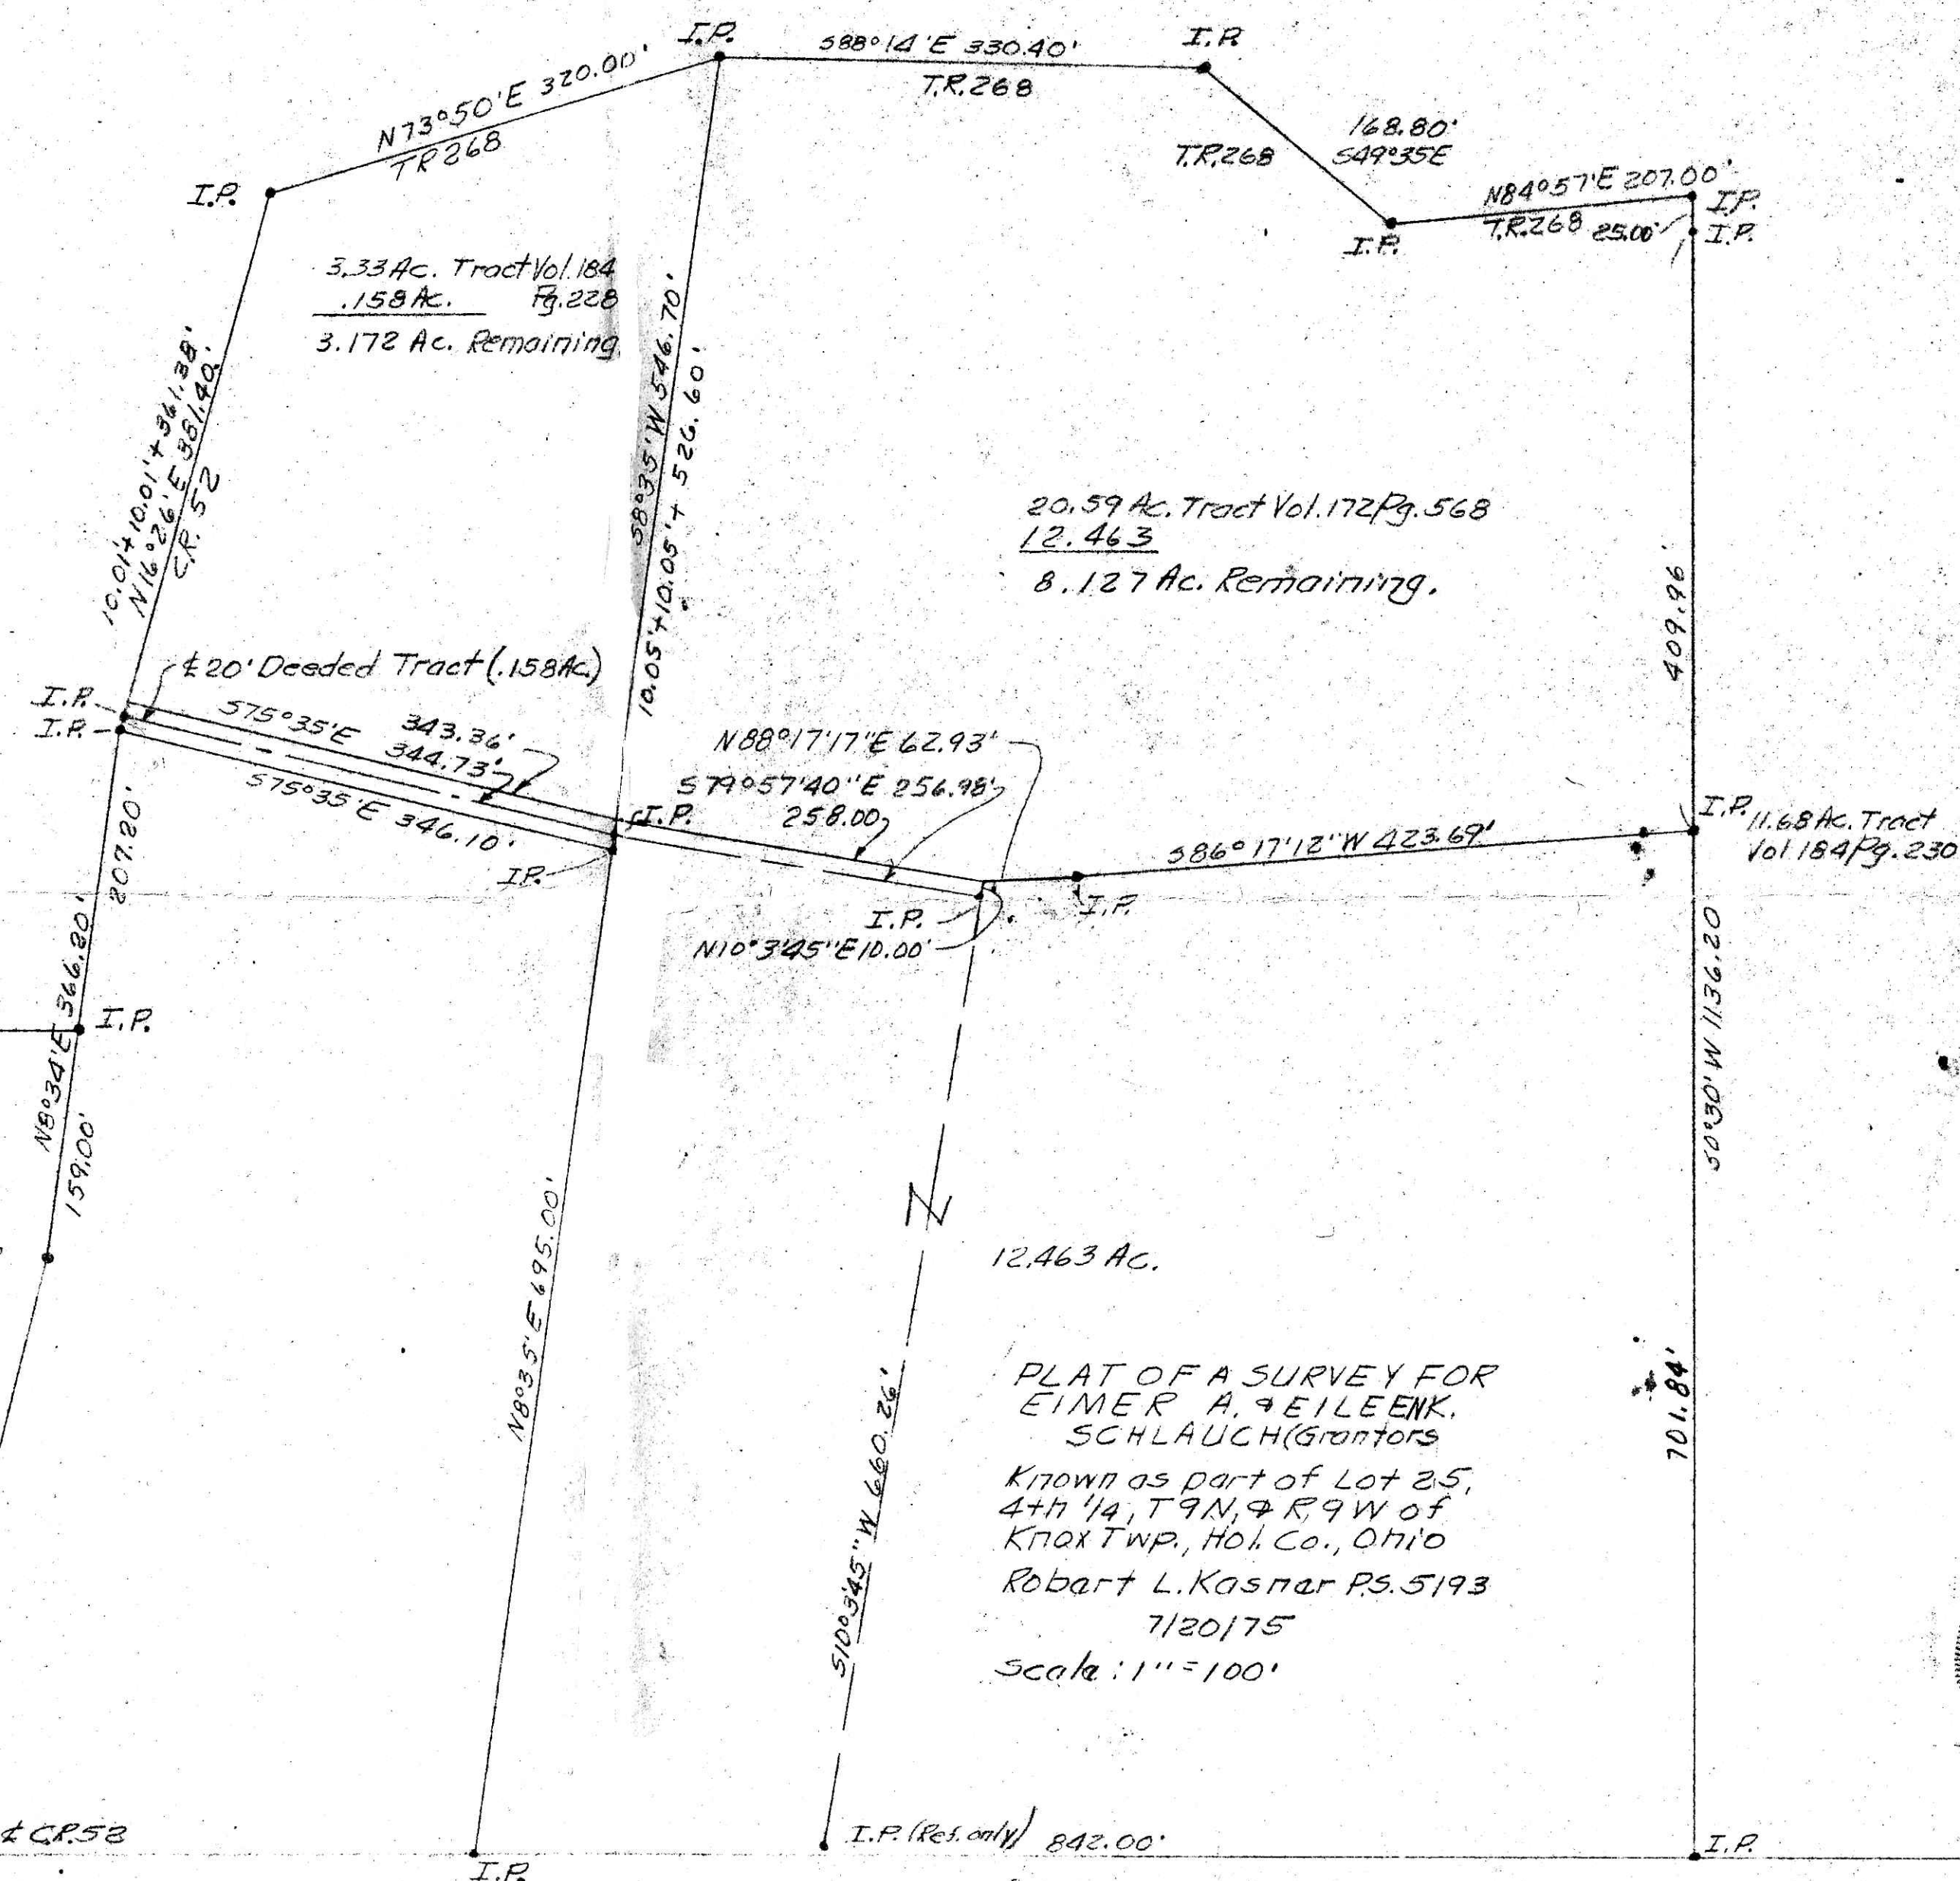 I.P.
S88°14'E 330.40'
I.P.
T.R.268
N73°50'E 320.00'
TR268
I.P.
168.80'
S49°35E
T.R.268
N84°57'E 207.00'
T.R.268 25.00'
I.P.
I.P.
I.P.
3.33 Ac. Tract Vol.184
.158 Ac. Pg.228
3.172 Ac. Remaining
10.01'+10.01'+361.38'
N16°26'E 381.40'
C.R. 52
S8°35'W 546.70'
10.05'+10.05'+ 526.60'
20.59 Ac. Tract Vol.172 Pg.568
12.463
8.127 Ac. Remaining.
409.96'
℄ 20' Deeded Tract (.158Ac.)
I.P.
I.P.
S75°35'E 343.36'
344.73'
S75°35'E 346.10'
N88°17'17"E 62.93'
S79°57'40"E 256.98'
258.00
I.P.
I.P.
S86°17'12"W 423.69'
I.P.
11.68 Ac. Tract
Vol 184 Pg. 230
I.P.
I.P.
N10°3'45"E 10.00'
207.20'
N8°34'E 366.20'
I.P.
159.00'
S0°30'W 1136.20
N8°35'E 695.00'
12.463 Ac.
701.84'
S10°3'45"W 660.26'
PLAT OF A SURVEY FOR
ElMER A. & EILEENK.
SCHLAUCH(Grantors
Known as part of Lot 25,
4th 1/4, T9N, & R9W of
Knox Twp., Hol. Co., Ohio
Robert L. Kasner P.S. 5193
7/20/75
Scale: 1"=100'
℄ C.R.52
I.P. (Ref. only) 842.00'
I.P.
I.P.